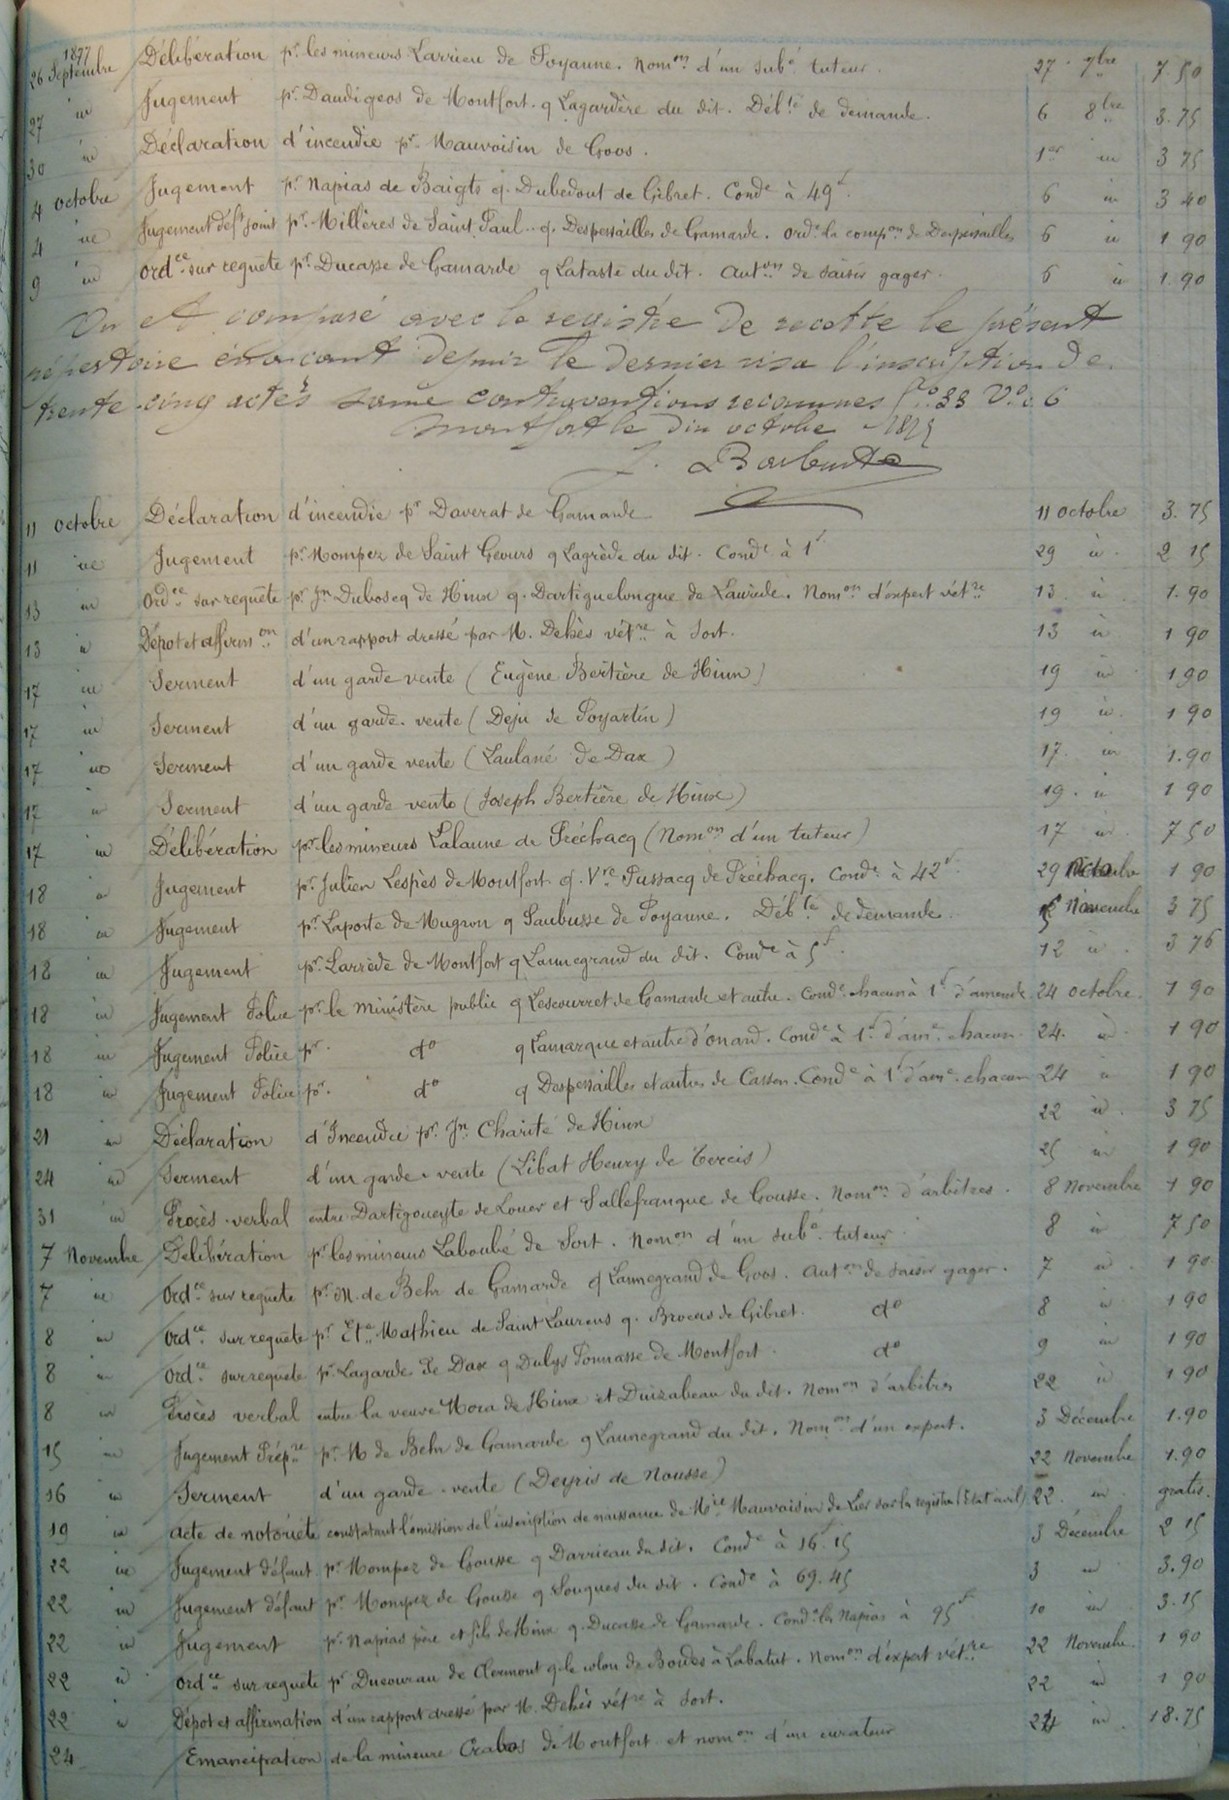 1877
26 Septembre Délibération pr. les mineurs Larrieu de Poyanne. Nomon d'un subé tuteur. 27 7bre 7.50
27 id Jugement pr. Daudigeos de Montfort. q Lagardère du dit. Débté de demande. 6 8bre 3.75
30 id Déclaration d'incendie pr. Mauvoisin de Goos. 1er id 3 75
4 octobre Jugement pr. Napias de Baigts q. Dubedout de Gibret. Conde à 49f. 6 id 3 40
4 id Jugement déft joint pr. Millères de Saint Paul. q. Despersailles de Gamarde. Orde la compon de Despersailles 6 id 1 90
9 id Ordce sur requête pr. Ducasse de Gamarde q Lataste du dit. Auton de saisir gager. 6 id 1.90
Vu et comparé avec le registre de recette le présent
répertoire énoncant depuis le dernier visa l'inscription de
trente-cinq actes sans contraventions reconnues fo 33 Vo c 6
Montfort le dix octobre
J. Barbuste
11 octobre Déclaration d'incendie pr Daverat de Gamarde 11 octobre 3.75
11 id Jugement pr. Mompez de Saint Geours q Lagrède du dit. Conde à 1f. 29 id 2 15
13 id Ordce sur requête pr. Jn Duboscq de Hinx q. Dartiguelongue de Laurède. Nomon d'expert vétre 13 id 1.90
13 id Dépot et affirmon d'un rapport dressé par M. Debès vétre à Sort. 13 id 1 90
17 id Serment d'un garde vente (Eugène Bertière de Hinx) 19 id 1 90
17 id Serment d'un garde-vente (Deju de Poyartin) 19 id 1 90
17 id Serment d'un garde vente (Laulané de Dax) 17 id 1.90
17 id Serment d'un garde vente (Joseph Bertière de Hinx) 19 id 1 90
17 id Délibération pr. les mineurs Lalanne de Préchacq (Nomon d'un tuteur) 17 id 7 50
18 id Jugement pr. Julien Lespès de Montfort q. Vve Pussacq de Préchacq. Conde à 42f. 29 octobre 1 90
18 id Jugement pr. Laporte de Mugron q Saubusse de Poyanne. Débté de demande. Novembre 3 75
18 id Jugement pr. Larrède de Montfort q Launegrand du dit. Conde à 5f. 12 id 3 76
18 id Jugement Police pr. le ministère public q Lescourret de Gamarde et autre. Conde chacun à 1f. d'amende 24 octobre. 1 90
18 id Jugement Police pr. do q Lamarque et autre d'onard. Conde à 1f. d'ame. chacun. 24 id 1 90
18 id Jugement Police pr. do q Despersailles et autres de Cassen. Conde à 1f d'ame. chacun 24 id 1 90
21 id Déclaration d'Incendie pr. Jn Charité de Hinx 22 id 3 75
24 id Serment d'un garde-vente (Libat Henry de Tercis) 25 id 1 90
31 id Procès-verbal entre Dartigoueyte de Louer et Sallefranque de Gousse. Nomon d'arbitres. 8 Novembre 1 90
7 Novembre Délibération pr. les mineurs Laboubé de Sort. Nomon d'un subé. tuteur 8 id 7 50
7 id Ordce sur requête pr. M. de Behr de Gamarde q Launegrand de Goos. Auton de saisir gager. 7 id 1 90
8 id Ordce sur requête pr. Ete Mathieu de Saint Laurens q. Brocas de Gibret. do 8 id 1 90
8 id Ordce sur requête pr. Lagarde de Dax q Dulys Ponnasse de Montfort. do 9 id 1 90
8 id Procès verbal entre la veuve Mora de Hinx et Duizabeau du dit. Nomon d'arbitres 22 id 1 90
15 id Jugement Prépre pr. M de Behr de Gamarde q Launegrand du dit. Nomon d'un expert. 3 Décembre 1.90
16 id Serment d'un garde-vente (Deyris de Nousse) 22 Novembre 1.90
19 id Acte de notoriété constatant l'omission de l'inscription de naissance de Mie Mauvoisin de Lier sur les registres (Etat civil) 22 id gratis.
22 id Jugement défaut pr. Mompez de Gousse q Darrieau du dit. Conde à 16f.15 3 Décembre 2 15
22 id Jugement défaut pr. Mompez de Gousse q Pouques du dit. Conde à 69.45 3 id 3.90
22 id Jugement pr. Napias père et fils de Hinx q. Ducasse de Gamarde. Conde les Napias à 95f 10 id 3.15
22 id Ordce sur requête pr Ducourau de Clermont q. le colon de Boudes à Labatut. Nomon d'expert vétre 22 Novembre. 1 90
22 id Dépot et affirmation d'un rapport dressé par M. Debès vétre à Sort. 22 id 1 90
24 Emancipation de la mineure Crabos de Montfort et nomon d'un curateur 24 id 18.75